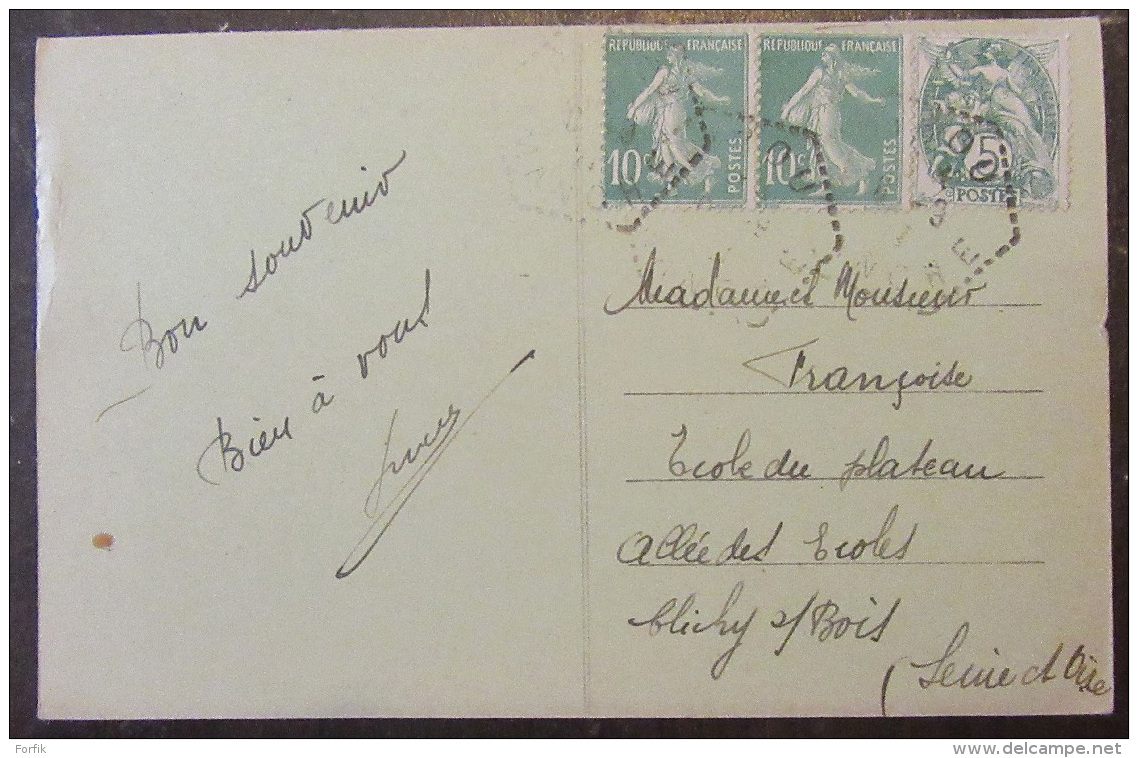 RÉPUBLIQUE FRANÇAISE
10c
POSTES
RÉPUBLIQUE FRANÇAISE
10c
POSTES
5
POSTES
Bon souvenir
Bien à vous
Madame et Monsieur
Françoise
Ecole du plateau
Allée des Ecoles
Clichy s/Bois
(Seine et Oise
Forfik
delcampe.net